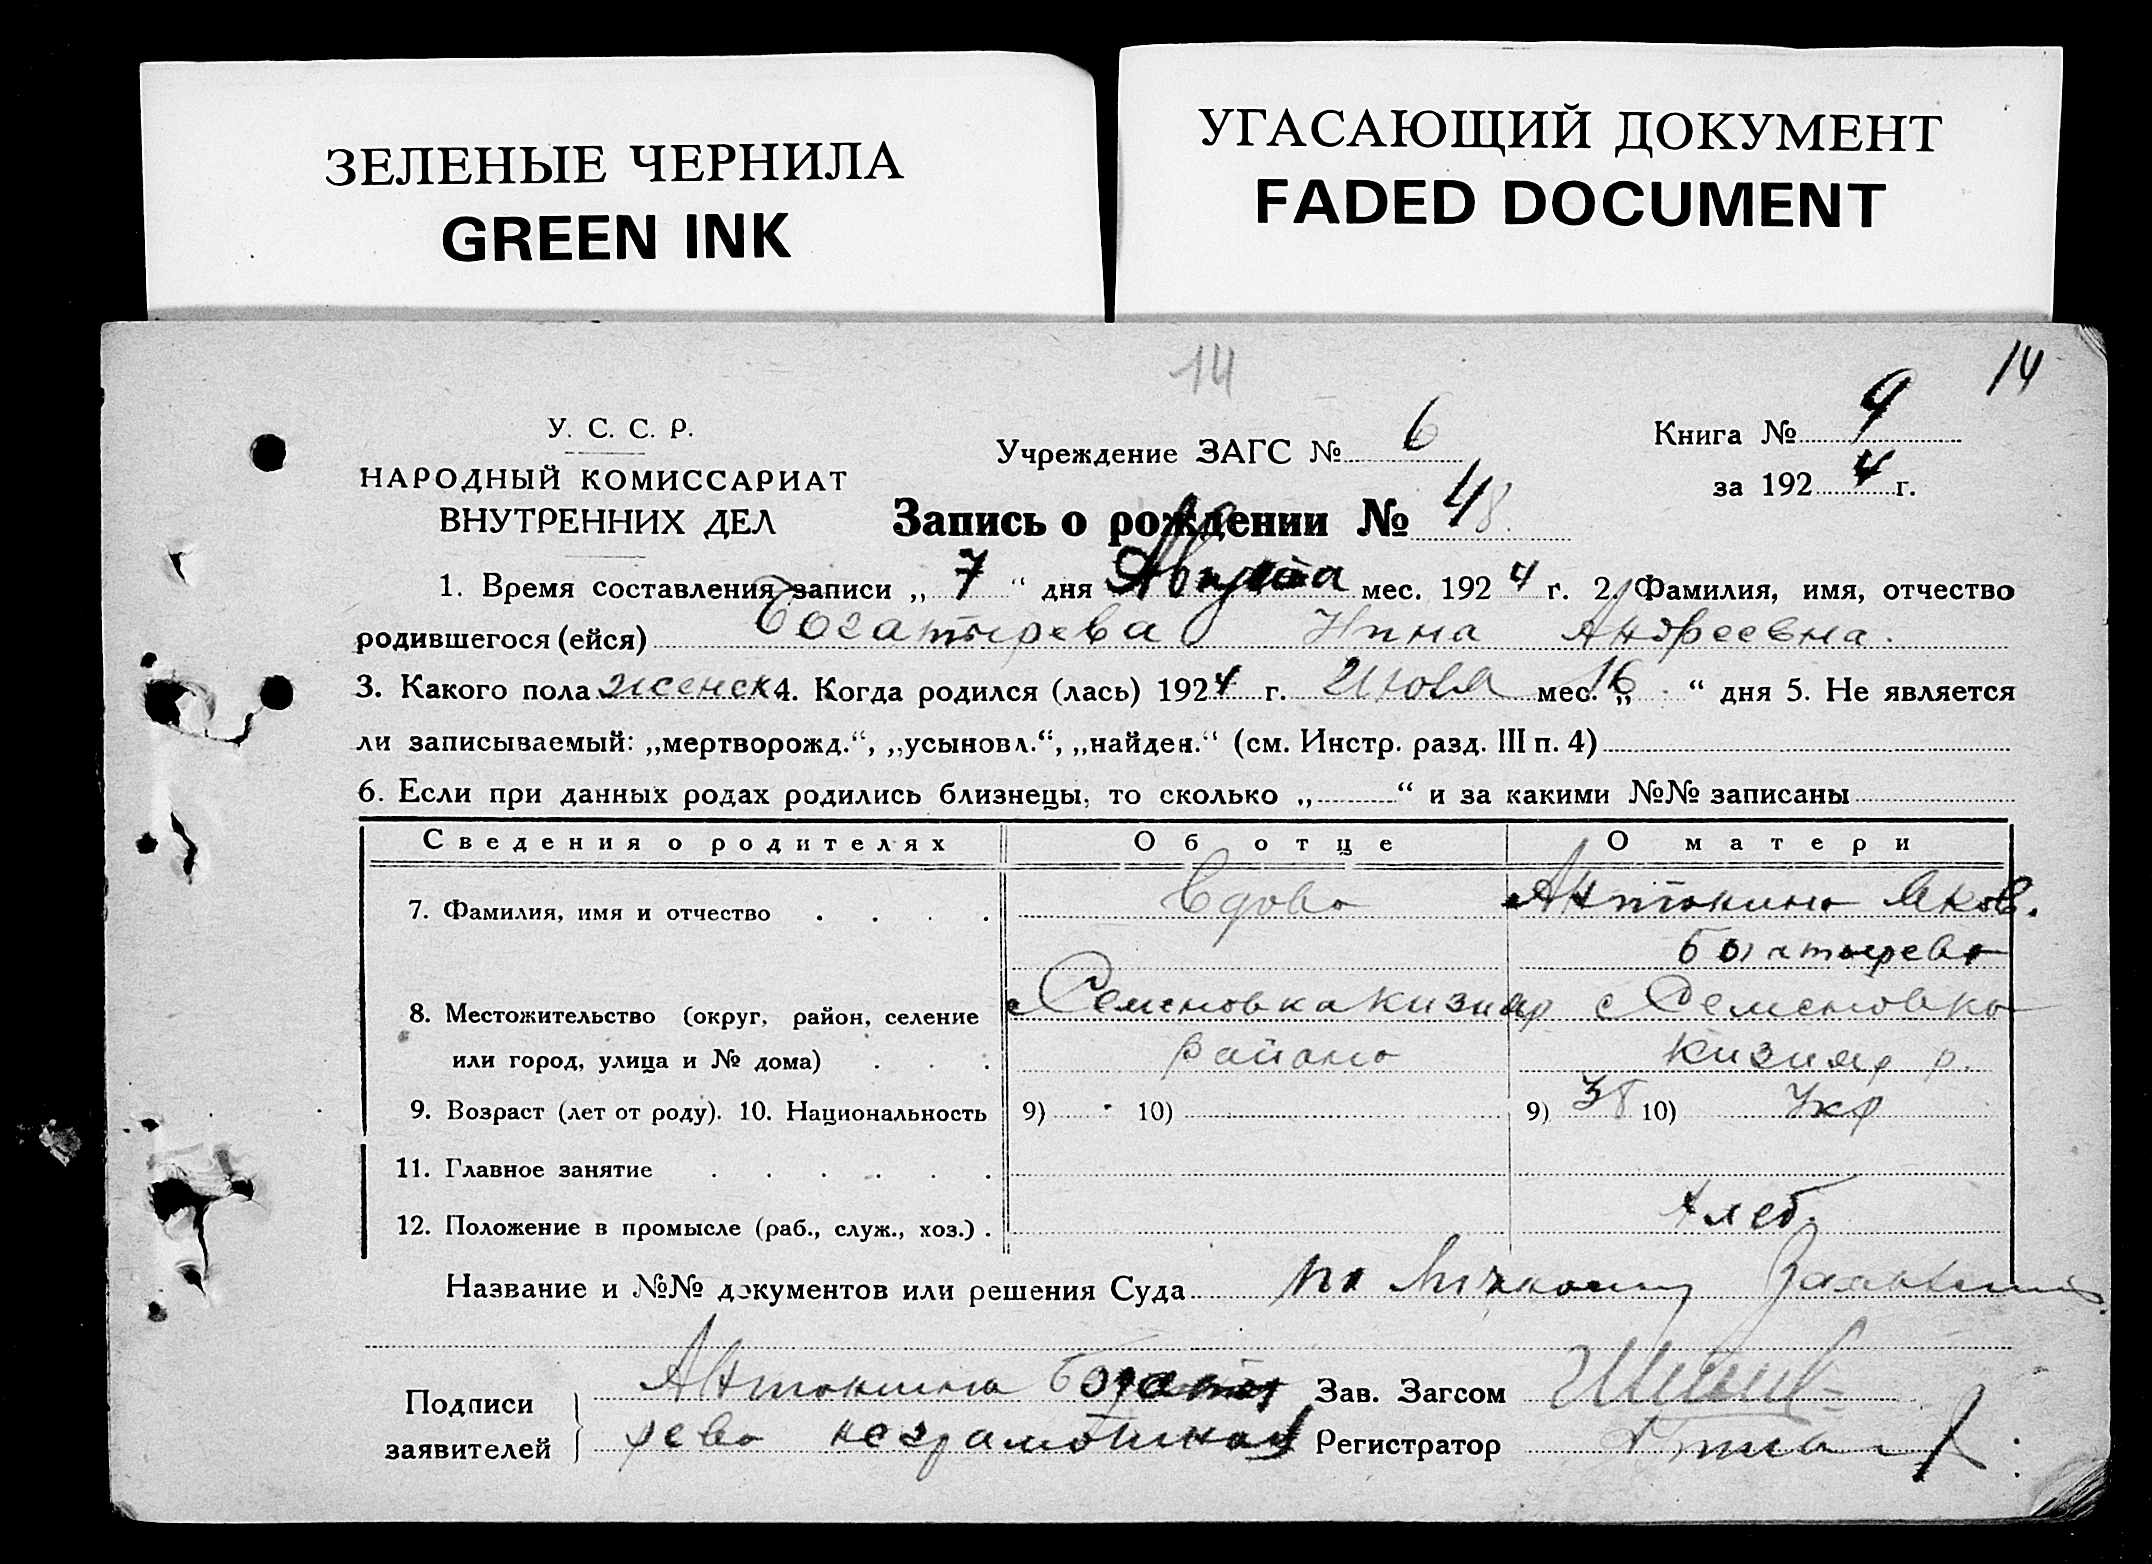 ЗЕЛЕНЫЕ ЧЕРНИЛА
GREEN INK
УГАСАЮЩИЙ ДОКУМЕНТ
FADED DOCUMENT
14
14
У. С. С. Р.
НАРОДНЫЙ КОМИССАРИАТ
ВНУТРЕННИХ ДЕЛ
Учреждение ЗАГС № 6
Книга № 9
за 1924 г.
Запись о рождении № 48
1. Время составления записи „ 7 “ дня Августа мес. 1924 г. 2. Фамилия, имя, отчество
родившегося (ейся) Богатырева Нина Андреевна.
3. Какого пола женск 4. Когда родился (лась) 1924 г. Июля мес. „ 16 “ дня 5. Не является
ли записываемый: „мертворожд.“, „усыновл.“, „найден.“ (см. Инстр. разд. III п. 4)
6. Если при данных родах родились близнецы, то сколько „ “ и за какими №№ записаны
Сведения о родителях Об отце О матери
7. Фамилия, имя и отчество Вдова Антонина Яков.
Богатырева
8. Местожительство (округ, район, селение с Семеновка Кизияр с Семеновка
или город, улица и № дома) района Кизияр р.
9. Возраст (лет от роду). 10. Национальность 9) 10) 9) 38 10) Укр
11. Главное занятие
12. Положение в промысле (раб., служ., хоз.) Хлеб.
Название и №№ документов или решения Суда по личному
Подписи заявителей Антонина Богаты
рева неграмотная
Зав. Загсом
Регистратор